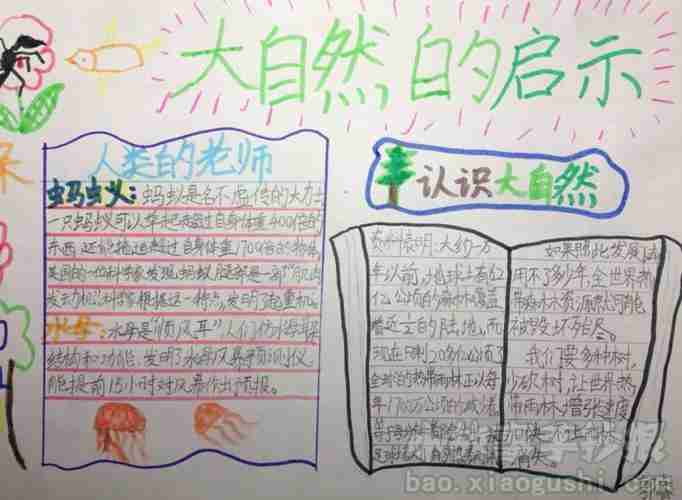 大自然的启示
人类的老师
蚂蚁:蚂蚁是名不虚传的大力士
一只蚂蚁可以举起超过自身体重400倍的
东西,还能拖运超过自身体重1700倍的物体
美国的一位科学家发现,蚂蚁腿部是一部"肌肉
发动机"科学家根据这一特点,发明了起重机
水母:水母是"顺风耳"人们仿
结构和功能,发明了水母风暴预测仪
能提前15小时对风暴作出预报。
认识大自然
资料表明:大约一万
年以前,地球上有62
亿公顷的森林覆盖
着近1/2的陆地,而
现在只剩28多亿公顷了
全球的热带雨林正以每
年1700万公顷的
等于每分钟
如果照此发展
用不了多少年,全世界热
带森林资源就可能
我们要多种树,
少砍树,让世界热
带雨林增长速度
加快
bao.xiaogushi.com